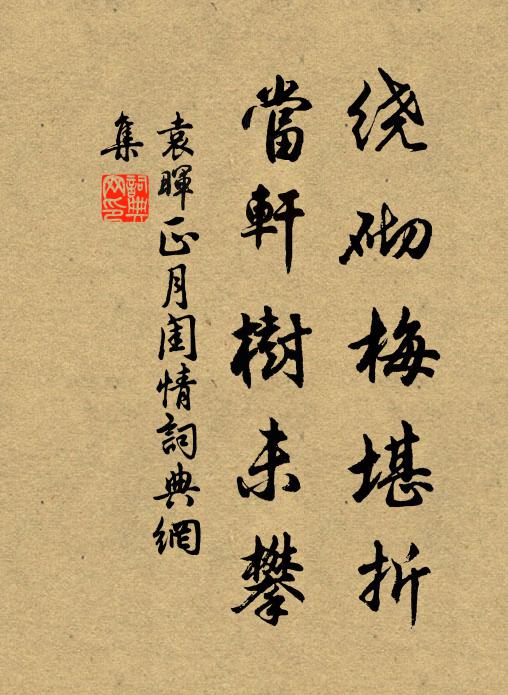 绕砌梅堪折
當軒樹未攀
袁暉正月閨情詞典網
集
詞典
网印